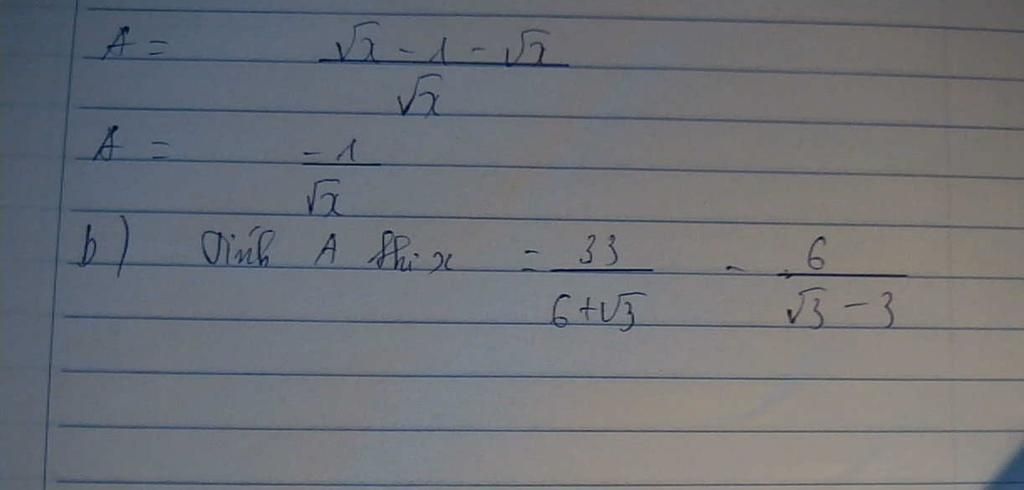 A = (√x - 1 - √x) / √x
A = -1 / √x
b) Tính A khi x = 33 / (6 + √3) - 6 / (√3 - 3)